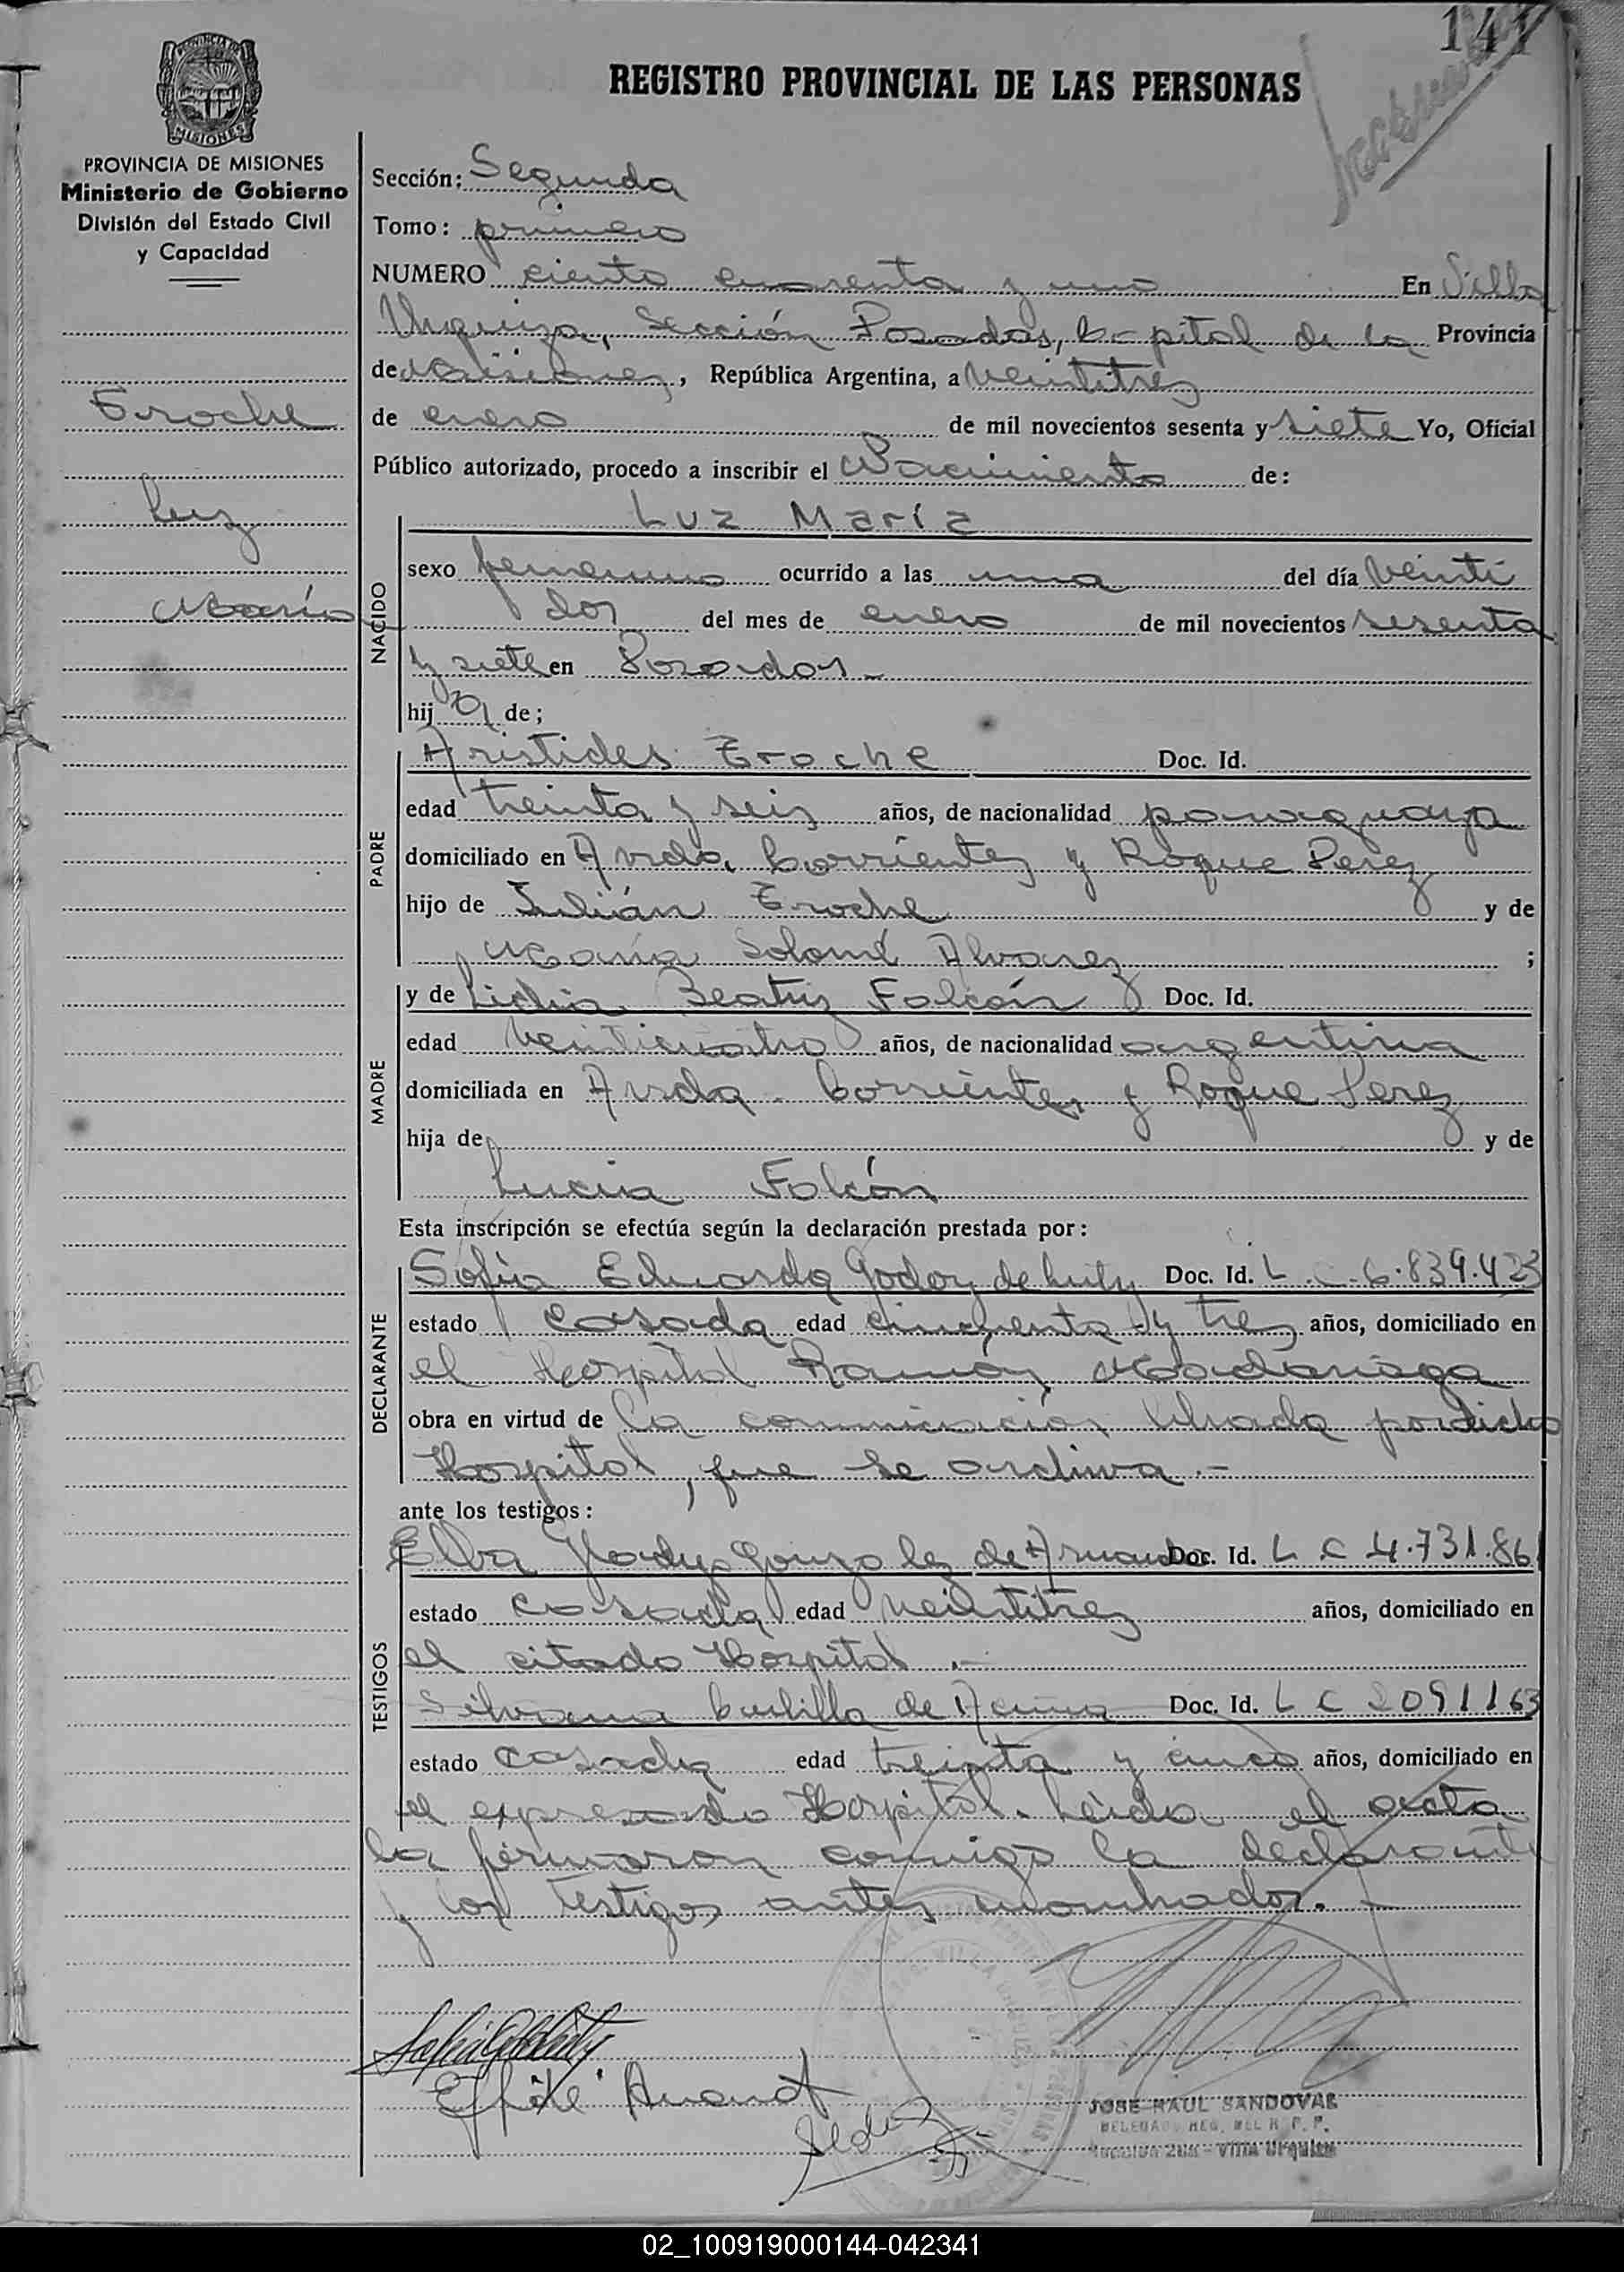 141
REGISTRO PROVINCIAL DE LAS PERSONAS
PROVINCIA DE MISIONES
Ministerio de Gobierno
División del Estado Civil
y Capacidad
Eroche
Luz
María
Sección: Segunda
Tomo: primero
NUMERO ciento cuarenta y uno En Villa
Urquiza, Sección Posadas, Capital de la Provincia
de Misiones, República Argentina, a veintitrez
de enero de mil novecientos sesenta y siete Yo, Oficial
Público autorizado, procedo a inscribir el Nacimiento de:
NACIDO
Luz María
sexo femenino ocurrido a las una del día veinti
dos del mes de enero de mil novecientos sesenta
y siete en Posadas.-
hija de;
PADRE
Aristides Eroche Doc. Id.
edad treinta y seis años, de nacionalidad paraguaya
domiciliado en Avda. Corrientes y Roque Perez
hijo de Julián Eroche y de
María Salomé Alvarez ;
MADRE
y de Lidia Beatriz Falcón Doc. Id.
edad veinticuatro años, de nacionalidad argentina
domiciliada en Avda. Corrientes y Roque Perez
hija de y de
Lucia Falcón
Esta inscripción se efectúa según la declaración prestada por:
DECLARANTE
Sofia Eduarda Godoy de Doc. Id. L.C. 6.839.423
estado casada edad cincuenta y tres años, domiciliado en
el Hospital Ramón Madariaga
obra en virtud de la comunicación librada por dicho
Hospital, que se archiva.-
ante los testigos:
TESTIGOS
Elba Gladys Gonzalez de Doc. Id. L C 4.731.861
estado casada edad veintitrez años, domiciliado en
el citado Hospital.-
Silvana de Acuña Doc. Id. L C 2091163
estado casada edad treinta y cinco años, domiciliado en
el expresado Hospital. Leida el acta
la firmaron conmigo la declarante
y los testigos antes nombrados.-
JOSE RAUL SANDOVAL
DELEGADO REG. DEL R. P. P.
Sección 2da - Villa Urquiza
02_100919000144-042341